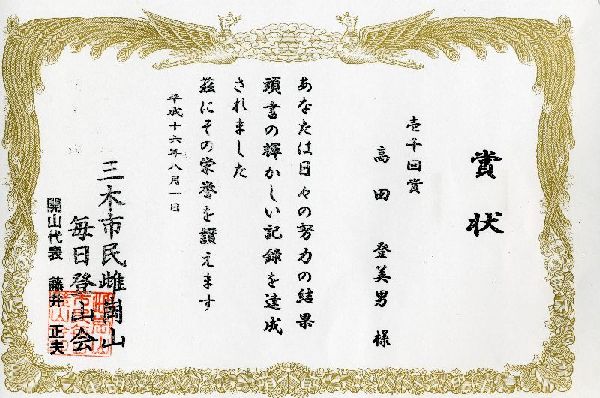 賞状
壱千回賞
高田 登美男 様
あなたは日々の努力の結果
頭書の輝かしい記録を達成
されました
茲にその栄誉を讃えます
平成十六年八月一日
三木市民雌岡山
毎日登山会
開山代表 藤井 正夫